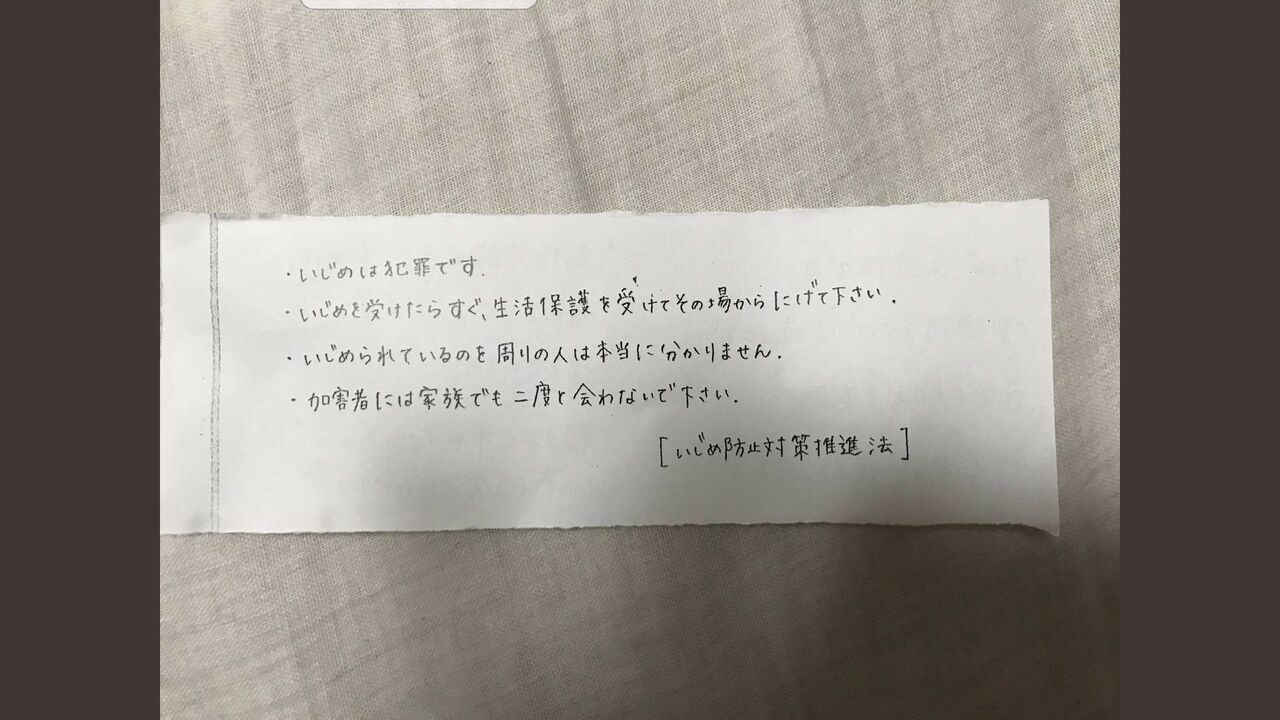 ・いじめは犯罪です.
・いじめを受けたらすぐ、生活保護を受けてその場からにげて下さい.
・いじめられているのを周りの人は本当に分かりません.
・加害者には家族でも二度と会わないで下さい.
[いじめ防止対策推進法]